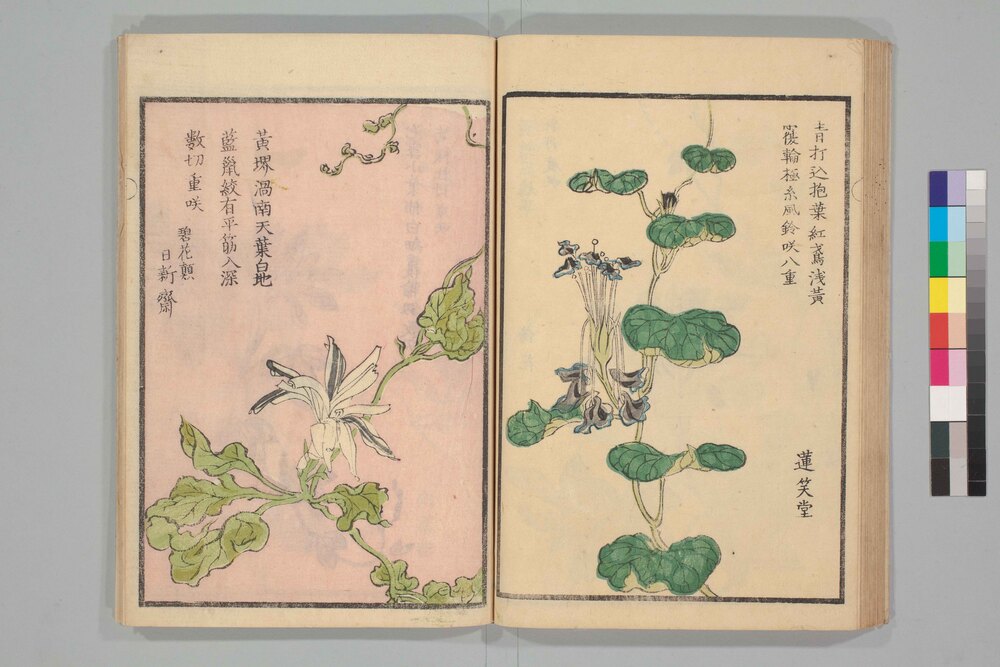 青打込抱葉紅鳶浅黄
覆輪極糸風鈴咲八重
蓮笑堂
黄堺渦南天葉白地
藍鼠絞有平筋入深
数切重咲
碧花翫
日新齋